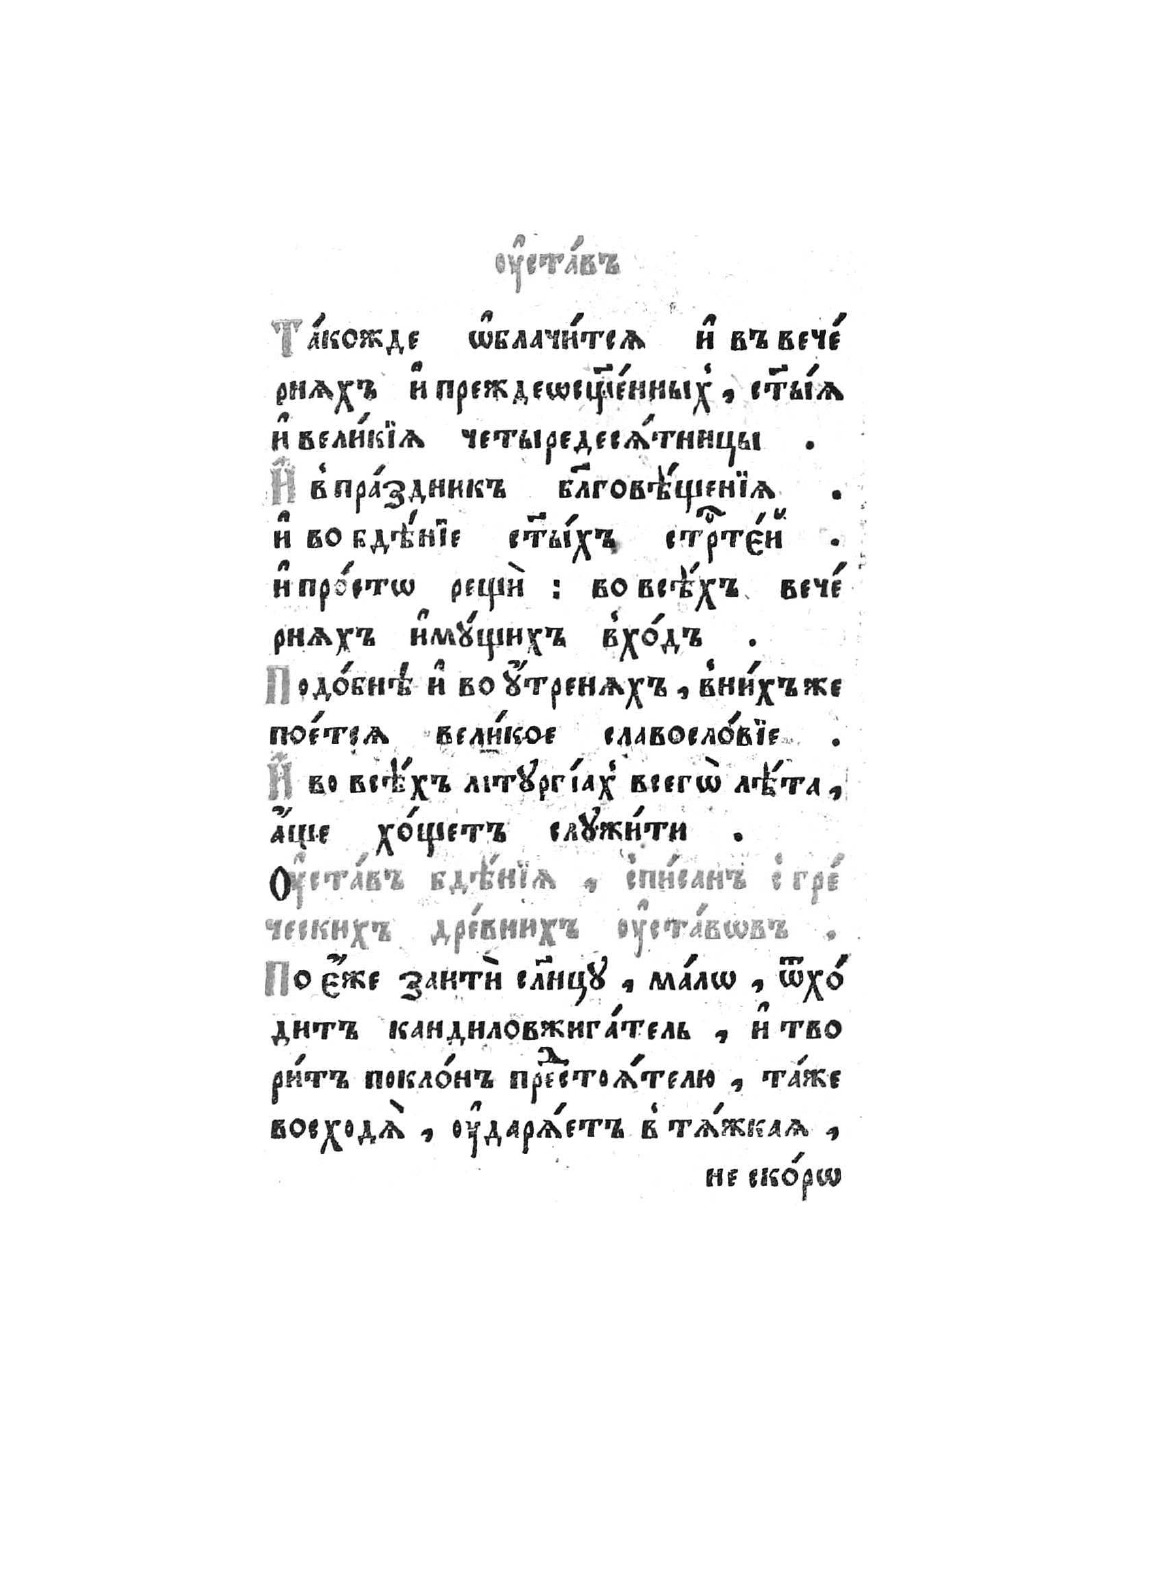 оу҆ста́въ
Та́кожде ѡ҆блачи́тсѧ и҆ въ вече́
рнѧхъ и҆ преждеѡсщ҃е́нныхъ, ст҃ы́ѧ
и҆ вели́кїѧ четыредесѧ́тницы .
И҆ в̾ пра́здникъ бл҃говѣ́щенїѧ .
и҆ во бдѣ́нїе ст҃ы́хъ стрⷭ҇те́й .
и҆ про́стѡ рещѝ : во всѣ́хъ вече́
рнѧхъ и҆мꙋ́щихъ в̾хо́дъ .
Подо́бнѣ и҆ во ᲂу҆́тренѧхъ, в̾ни́хъже
пое́тсѧ вели́кое славосло́вїе .
И҆ во всѣ́хъ лїтꙋргі́ахъ всегѡ̀ лѣ́та,
а҆́ще хо́щетъ слꙋжи́ти .
Оу҆ста́въ бдѣ́нїѧ , с̾пи́санъ с̾ гре́
ческихъ дре́внихъ оу҆ста́вѡвъ .
По є҆́же заитѝ сл҃нцꙋ , ма́лѡ , ѿхо́
дитъ кандиловжига́тель , и҆ тво
ри́тъ покло́нъ преⷣстоѧ́телю , та́же
восходѧ̀ , оу҆дарѧ́етъ в̾ тѧ́жкаѧ ,
не ско́рѡ